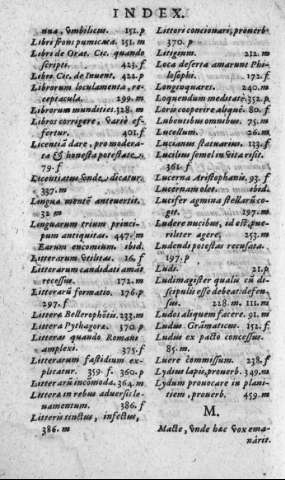 INDEX.
nua, vmbilicus. 151.p
Libri frons pumicata. 151.m
Libro de Orat. Cic. quando
scripti. 423.f
Libro. Cic. de Inuent. 422.p
Librorum loculamenta, re-
ceptacula. 299.m
Librorum munditiei. 328.m
Libros corrigere, variè ef-
fertur. 401.f
Licentiā dare, pro modera-
ta & honesta potestate,
79.f
Licentiatus vnde, dicatur.
337.m
Lingua mentē anteuertit.
32 m
Linguarum trium princi-
pum antiquitas. 447.m
Earum encomium ibid.
Litterarum vtilitas. 16.f
Litterarum candidati amāt
recessus. 172.m
Litterarū formatio. 176.p
297.f
Littera Bellerophōtis. 233.m
Littera Pythagoræ. 370.p
Litteras quando Romani
amplexi. 375.f
Litterarum fastidum ex-
plicatur. 359.f. 360.p
Litterarū incōmoda. 364.m
Littora in rebus aduersis le-
uamentum. 386.f
Litteris tinctus, infectus,
386.m
Littori concionari, prouerb.
370.p
Lityinum. 212.m
Loca deserta amarunt Phi-
losophi. 172.f
Longæquares. 240.m
Loquendum meditatè. 352.p
Lorio cooperire aliquē. 80.f
Lubentibus omnibus. 75.m
Lucellum. 26.m
Lucianus statuarius. 133.f
Lucilius semel in vita risit.
361.f
Lucerna Aristophanis. 93.f
Lucernam olet. ibid.
Lucifer agmina stellarū co-
git. 197.m
Ludere nucibus, id est, pue-
riliter agere. 253.m
Ludendi potestas recusata.
197.p
Ludi. 21.p
Ludimagister qualis cū di-
scipulis esse debeat idem,
suus. 228.m. 111.m
Ludos aliquem facere. 91.m
Ludus Grāmaticus. 152.f
Ludus ex pacto concessus.
85.m.
Luere commissum. 238.f
Lydius lapis, prouerb. 349.m
Lydum prouocare in plani-
tiem, prouerb. 459.m
M.
Macte, vnde hæc vox ema-
nârit.